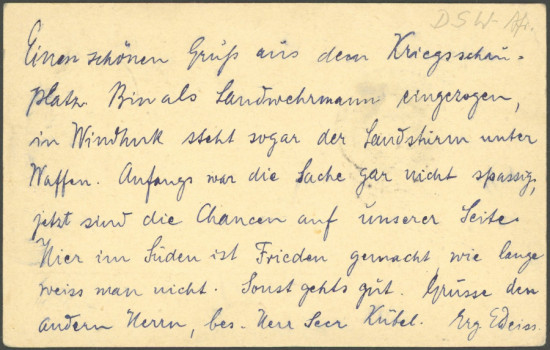 DSW-Afr.
Einen schönen Gruß aus dem Kriegsschau-
platz. Bin als Landwehrmann eingezogen,
in Windhuk steht sogar der Landsturm unter
Waffen. Anfangs war die Sache gar nicht spassig,
jetzt sind die Chancen auf unserer Seite.
Hier im Süden ist Frieden gemacht wie lange
weiss man nicht. Sonst gehts gut. Grüsse den
andern Herrn, bes. Herr Kübel. Erg